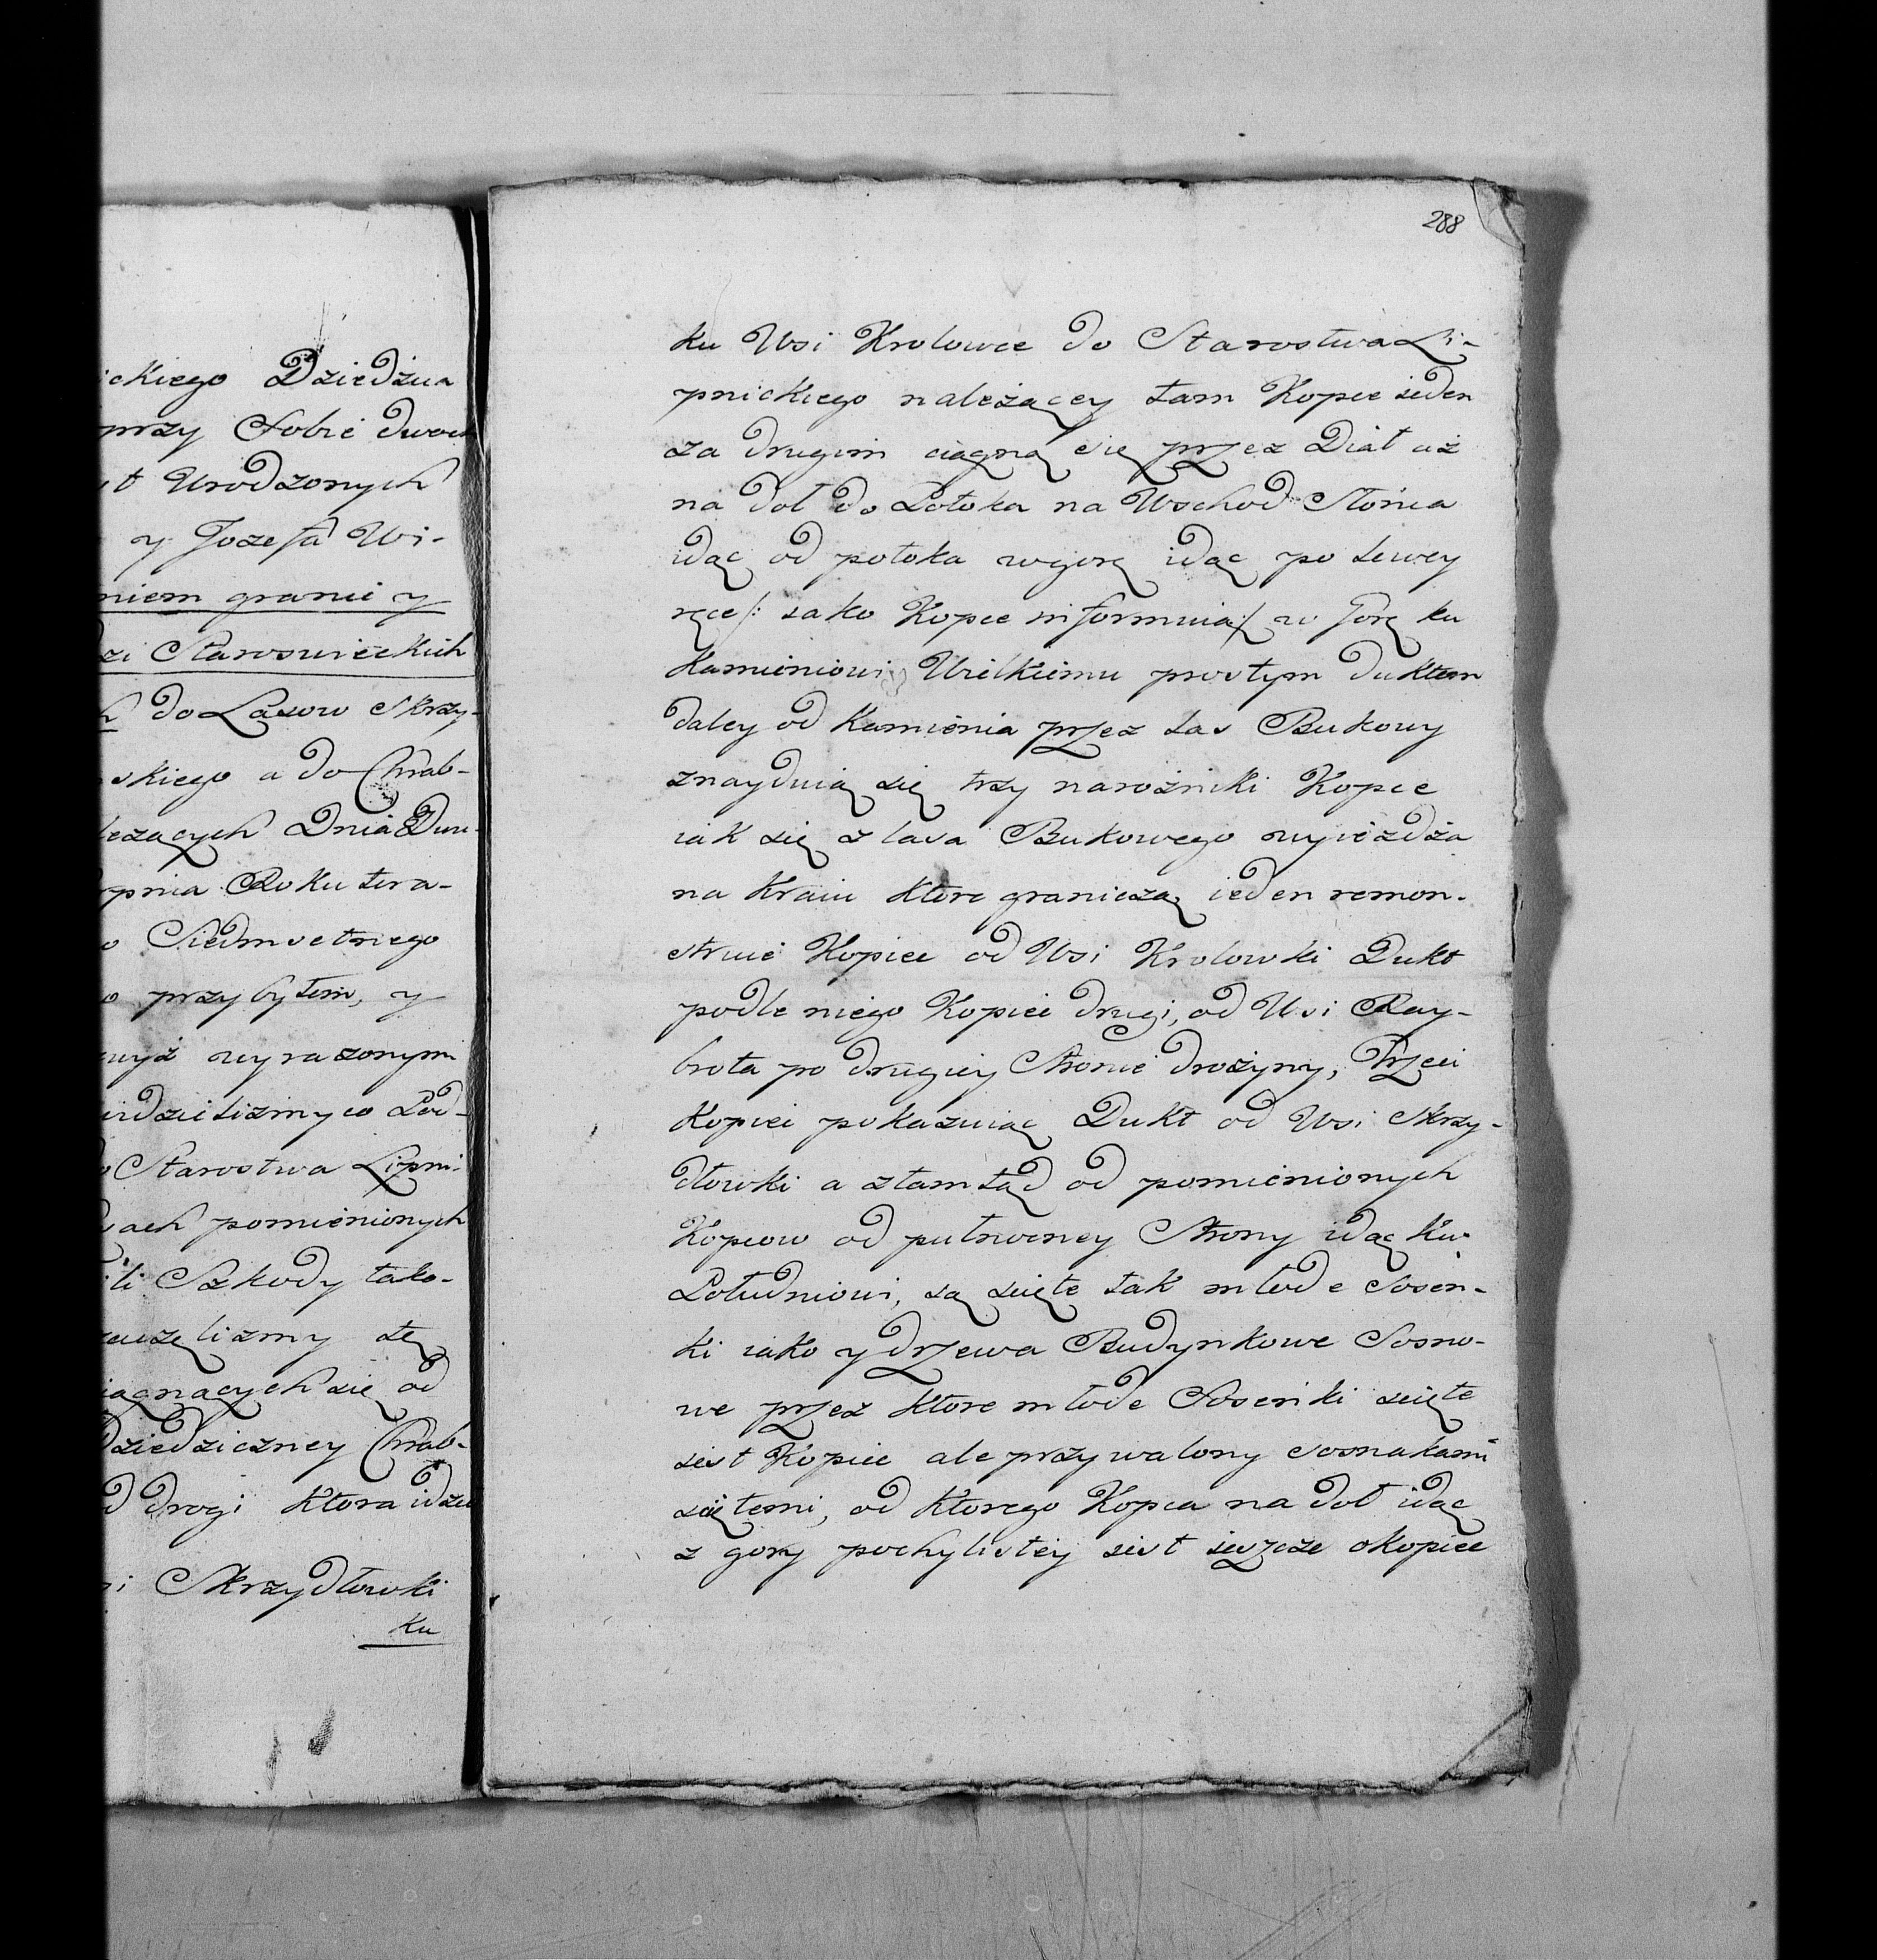 ickiego Dziedzica
przy Sobie dwoch
Urodzonych
y Jozefa Wi-
niem granic y
Starosciecki
do Lasow Skrzy-
skiego a do Chrab-
lezących Dnia Dwu-
pnia Roku tera-
o Siedmsetnego
o przybyłem, y
wyż wyrazonym
o Starostwa Lipni-
pomienionych
Szkody tako-
tę
iągnących się od
Dziedziczney Chrab-
d drogi Ktora idzie
Skrzydłowki
ku
288
ku Wsi Krolowce do Starostwa Li-
pnickiego należącey tam Kopce ieden
za drugim ciągną się przez Diał aż
na doł do Potoka na Wschod Słońca
idąc od potoka wgorę idąc po lewey
ręce /: iako Kopce informuią :/ w Gorę ku
Kamieniowi Wielkiemu prostym duktem
daley od Kamienia przez Las Bukowy
znayduią się trzy narożniki Kopce
iak się z lasa Bukowego wyieżdża
na Kraiu Ktore graniczą ieden remon-
struie Kopiec od Wsi Krolowki Dukt
podle niego Kopiec drugi, od Wsi Ray-
brota po drugiey Stronie drożyny, Trzeci
Kopiec pokazuiąc Dukt od Wsi Skrzy-
dłowki a ztamtąd od pomienionych
Kopcow od putnocney Strony idąc Ku
Południowi, są ścięte tak młode Sosen-
ki iako y drzewa Budynkowe Sosno-
we przez Ktore młode Sosenki ścięte
iest Kopiec ale przywalony sosnakami
ściętemi, od Ktorego Kopca na doł idąc
z gory pochylistey iest ieszcze okopiec